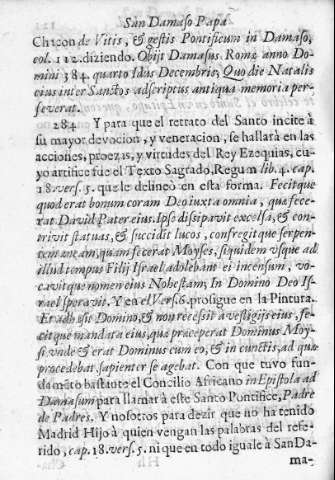 San Damaso Papa
Chacon de Vitis, & gestis Pontificum in Damaso,
col. 112. diziendo. Obijt Damasus Romæ anno Do-
mini 384. quarto Idus Decembris, Quo die Natalis
eius inter Sanctos adscriptus antiqua memoria per-
severat.
284. Y para que el retrato del Santo incite à
su mayor devocion, y veneracion, se hallarà en las
acciones, proezas, y virtudes del Rey Ezequias, cu-
yo artifice fue el Texto Sagrado, Regum lib. 4. cap.
18. vers. 5. que le delineò en esta forma. Fecitque
quod erat bonum coram Deo iuxta omnia, qua fece-
rat David Pater eius. Ipse dissipavit excelsa, & con-
trivit statuas, & succidit lucos, confregitque serpen-
tem æneam, quam fecerat Moyses, siquidem vsque ad
illud tempus Filij Israel adolebant ei incensum, vo-
cavitque nomen eius Nohestam, In Domino Deo Is-
rael speravit. Y en el Vers. 6. prosigue en la Pintura.
Et adhæsit Domino, & non recessit a vestigijs eius, fe-
citque mandata eius, qua præceperat Dominus Moy-
si vnde & erat Dominus cum eo, & in cunctis, ad quæ
procedebat sapienter se agebat. Con que tuvo fun-
damẽto bastante el Concilio Africano in Epistola ad
Damasum para llamar à este Santo Pontifice, Padre
de Padres. Y nosotros para dezir que no ha tenido
Madrid Hijo à quien vengan las palabras del refe-
rido, cap. 18. vers. 5. ni que en todo iguale à San Da-
ma-